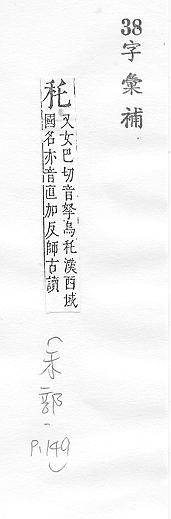 38字彙補
秅
又女巴切音拏烏秅漢西域
國名亦音直加反師古讀
(禾部-P.149)